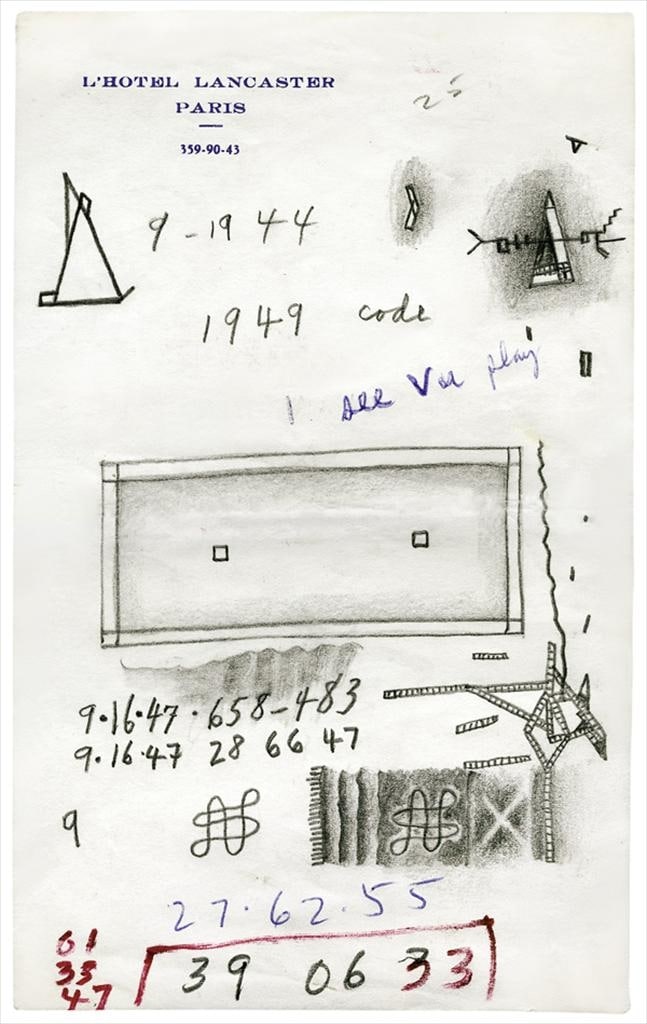 L'HOTEL LANCASTER
PARIS
359-90-43
25
9-1944
1949 code
I see play
9.16.47.658-483
9.16.47 28 66 47
9
27.62.55
61
33
47
39 06 33